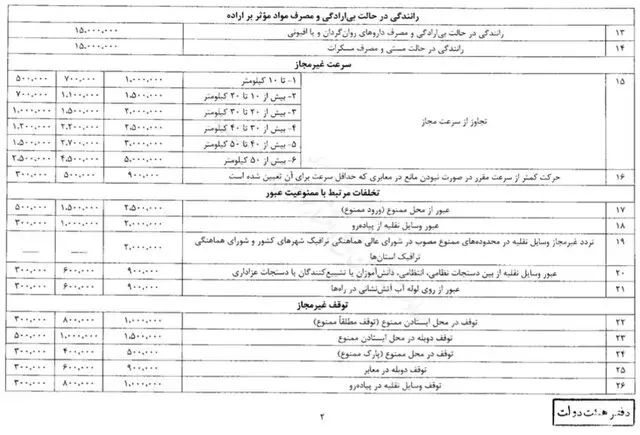 رانندگی در حالت بی‌ارادگی و مصرف مواد مؤثر بر اراده
۱۳ رانندگی در حالت بی‌ارادگی و مصرف داروهای روان‌گردان و یا افیونی ۱۵.۰۰۰.۰۰۰
۱۴ رانندگی در حالت مستی و مصرف مسکرات ۱۵.۰۰۰.۰۰۰
سرعت غیرمجاز
۱۵ تجاوز از سرعت مجاز
۱- تا ۱۰ کیلومتر ۱.۰۰۰.۰۰۰ ۷۰۰.۰۰۰ ۵۰۰.۰۰۰
۲- بیش از ۱۰ تا ۲۰ کیلومتر ۱.۵۰۰.۰۰۰ ۱.۱۰۰.۰۰۰ ۷۰۰.۰۰۰
۳- بیش از ۲۰ تا ۳۰ کیلومتر ۲.۰۰۰.۰۰۰ ۱.۵۰۰.۰۰۰ ۱.۰۰۰.۰۰۰
۴- بیش از ۳۰ تا ۴۰ کیلومتر ۲.۵۰۰.۰۰۰ ۲.۲۰۰.۰۰۰ ۱.۲۰۰.۰۰۰
۵- بیش از ۴۰ تا ۵۰ کیلومتر ۲.۷۰۰.۰۰۰ ۱.۵۰۰.۰۰۰
۶- بیش از ۵۰ کیلومتر ۵.۰۰۰.۰۰۰ ۴.۵۰۰.۰۰۰ ۲.۵۰۰.۰۰۰
۱۶ حرکت کمتر از سرعت مقرر در صورت نبودن مانع در معابری که حداقل سرعت برای آن تعیین شده است ۹۰۰.۰۰۰ ۵۰۰.۰۰۰ ۳۰۰.۰۰۰
تخلفات مرتبط با ممنوعیت عبور
۱۷ عبور از محل ممنوع (ورود ممنوع) ۲.۵۰۰.۰۰۰ ۱.۵۰۰.۰۰۰ ۵۰۰.۰۰۰
۱۸ عبور وسایل نقلیه از پیاده‌رو ۲.۰۰۰.۰۰۰ ۱.۰۰۰.۰۰۰ ۳۰۰.۰۰۰
۱۹ تردد غیرمجاز وسایل نقلیه در محدوده‌های ممنوع مصوب در شورای عالی هماهنگی ترافیک شهرهای کشور و شورای هماهنگی ۲.۰۰۰.۰۰۰ — —
ترافیک استان‌ها
۲۰ عبور وسایل نقلیه از بین دستجات نظامی، انتظامی، دانش‌آموزان یا تشییع‌کنندگان یا دستجات عزاداری ۹۰۰.۰۰۰ ۶۰۰.۰۰۰ ۳۰۰.۰۰۰
۲۱ عبور از روی لوله آب آتش‌نشانی در راه‌ها ۹۰۰.۰۰۰ ۶۰۰.۰۰۰ ۳۰۰.۰۰۰
توقف غیرمجاز
۲۲ توقف در محل ایستادن ممنوع (توقف مطلقاً ممنوع) ۱.۰۰۰.۰۰۰ ۸۰۰.۰۰۰ ۳۰۰.۰۰۰
۲۳ توقف دوبله در محل ایستادن ممنوع ۱.۵۰۰.۰۰۰ ۱.۰۰۰.۰۰۰ ۵۰۰.۰۰۰
۲۴ توقف در محل ممنوع (پارک ممنوع) ۵۰۰.۰۰۰ ۴۰۰.۰۰۰ ۳۰۰.۰۰۰
۲۵ توقف دوبله در معابر ۹۰۰.۰۰۰ ۶۰۰.۰۰۰ ۳۰۰.۰۰۰
۲۶ توقف وسایل نقلیه در پیاده‌رو ۱.۰۰۰.۰۰۰ ۸۰۰.۰۰۰ ۳۰۰.۰۰۰
۲
دفتر هیئت دولت